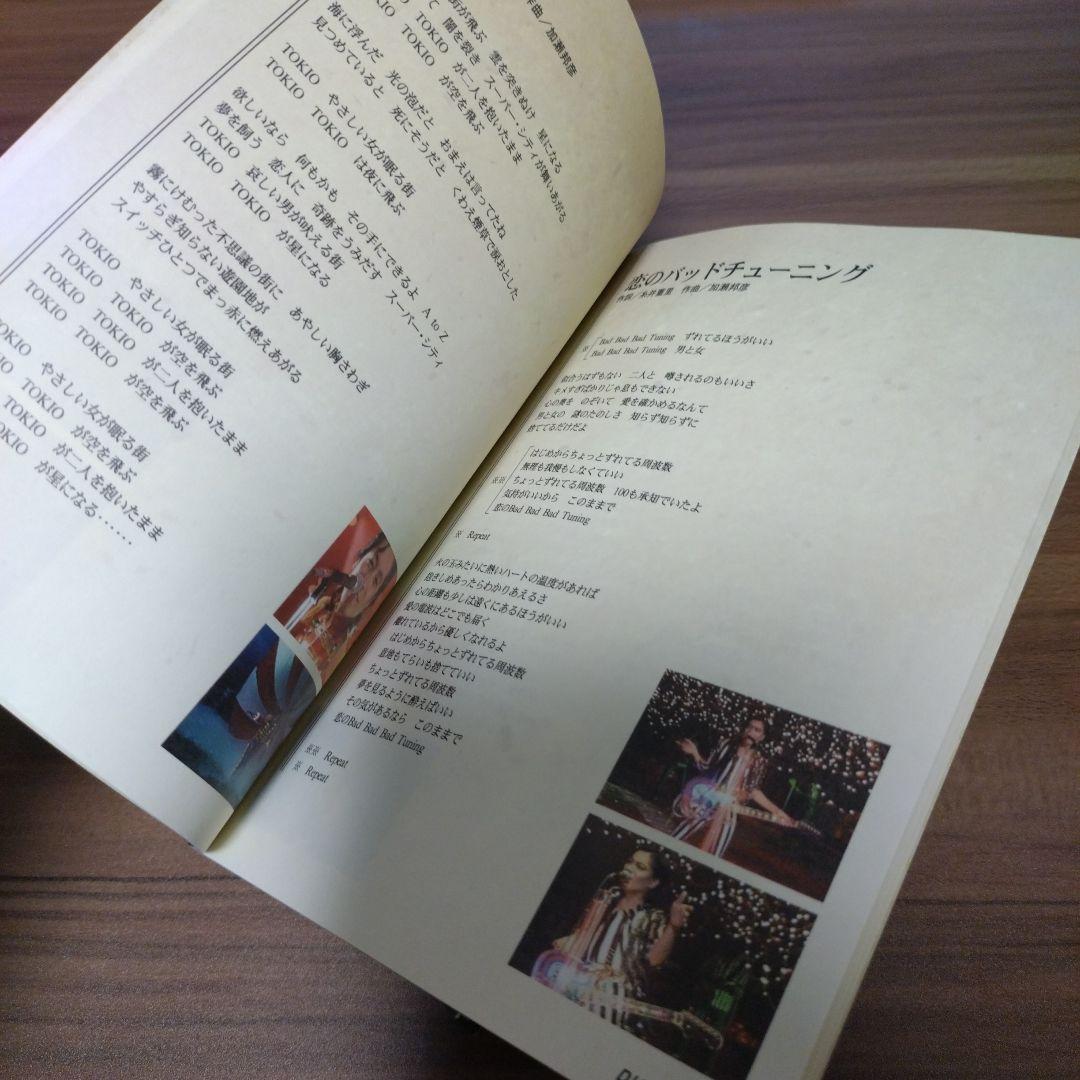 作曲／加瀬邦彦
街が飛ぶ　雲を突きぬけ　星になる
て　闇を裂き　スーパー・シティが舞いあがる
TOKIO　TOKIO　が二人を抱いたまま
TOKIO　TOKIO　が空を飛ぶ
海に浮んだ　光の泡だと　おまえは言ってたね
見つめていると　死にそうだと　くわえ煙草で涙おとした
TOKIO　やさしい女が眠る街
TOKIO　TOKIO　は夜に飛ぶ
欲しいなら　何もかも　その手にできるよ　A to Z
夢を飼う　恋人に　奇跡をうみだす　スーパー・シティ
TOKIO　哀しい男が吠える街
TOKIO　TOKIO　が星になる
霧にけむった不思議の街に　あやしい胸さわぎ
やすらぎ知らない遊園地が
スイッチひとつでまっ赤に燃えあがる
TOKIO　やさしい女が眠る街
TOKIO　TOKIO　が空を飛ぶ
TOKIO　TOKIO　が二人を抱いたまま
TOKIO　TOKIO　が空を飛ぶ
TOKIO　やさしい女が眠る街
TOKIO　TOKIO　が空を飛ぶ
TOKIO　TOKIO　が二人を抱いたまま
TOKIO　TOKIO　が星になる……
恋のバッドチューニング
作詞／糸井重里　作曲／加瀬邦彦
※ Bad Bad Bad Tuning　ずれてるほうがいい
Bad Bad Bad Tuning　男と女
似合うはずもない　二人と　噂されるのもいいさ
キメすぎばかりじゃ息もできない
心の奥を　のぞいて　愛を確かめるなんて
男と女の　謎のたのしさ　知らず知らずに
捨ててるだけだよ
はじめからちょっとずれてる周波数
無理も我慢もしなくていい
※※ ちょっとずれてる周波数　100も承知でいたよ
気持がいいから　このままで
恋のBad Bad Bad Tuning
※　Repeat
火の玉みたいに熱いハートの温度があれば
抱きしめあったらわかりあえるさ
心の距離も少しは遠くにあるほうがいい
愛の電波はどこでも届く
離れているから優しくなれるよ
はじめからちょっとずれてる周波数
意地もてらいも捨てていい
ちょっとずれてる周波数
夢を見るように酔えばいい
その気があるなら　このままで
恋のBad Bad Bad Tuning
※※　Repeat
※　Repeat